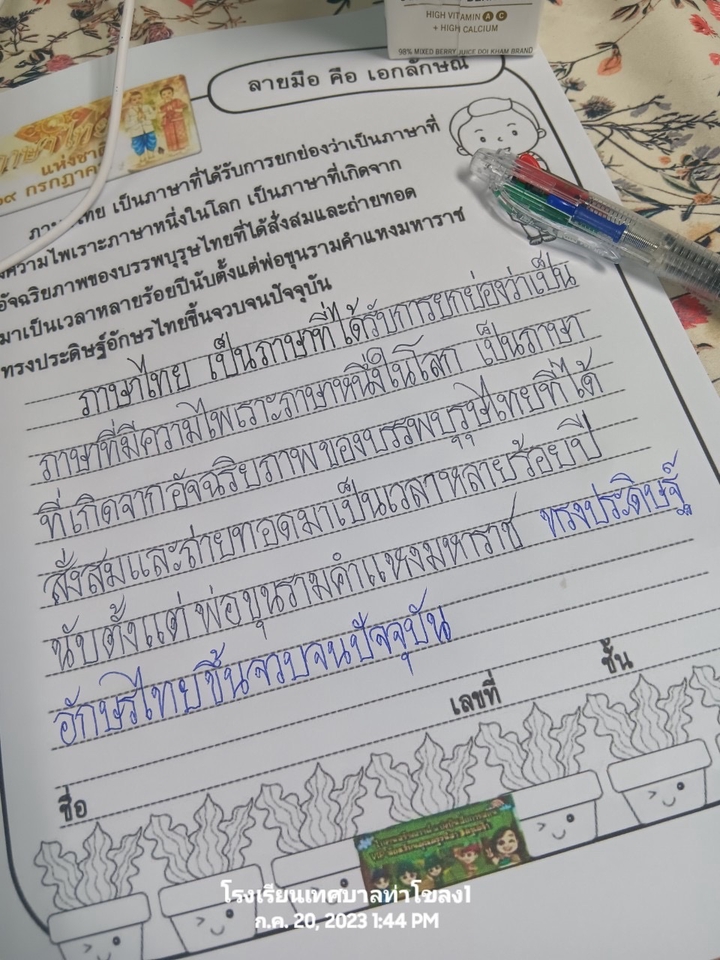 HIGH VITAMIN A C
+ HIGH CALCIUM
98% MIXED BERRY JUICE DOI KHAM BRAND
ลายมือ คือ เอกลักษณ์
แห่งชาติ
๒๙ กรกฎาคม
ภาษาไทย เป็นภาษาที่ได้รับการยกย่องว่าเป็นภาษาที่
ความไพเราะภาษาหนึ่งในโลก เป็นภาษาที่เกิดจาก
อัจฉริยภาพของบรรพบุรุษไทยที่ได้สั่งสมและถ่ายทอด
มาเป็นเวลาหลายร้อยปีนับตั้งแต่พ่อขุนรามคำแหงมหาราช
ทรงประดิษฐ์อักษรไทยขึ้นจวบจนปัจจุบัน
ภาษาไทย เป็นภาษาที่ได้รับการยกย่องว่าเป็น
ภาษาที่มีความไพเราะภาษาหนึ่งในโลก เป็นภาษา
ที่เกิดจากอัจฉริยภาพของบรรพบุรุษไทยที่ได้
สั่งสมและถ่ายทอดมาเป็นเวลาหลายร้อยปี
นับตั้งแต่ พ่อขุนรามคำแหงมหาราช ทรงประดิษฐ์
อักษรไทยขึ้นจวบจนปัจจุบัน
ชื่อ เลขที่ ชั้น
โรงเรียนเทศบาลท่าโขลง1
ก.ค. 20, 2023 1:44 PM